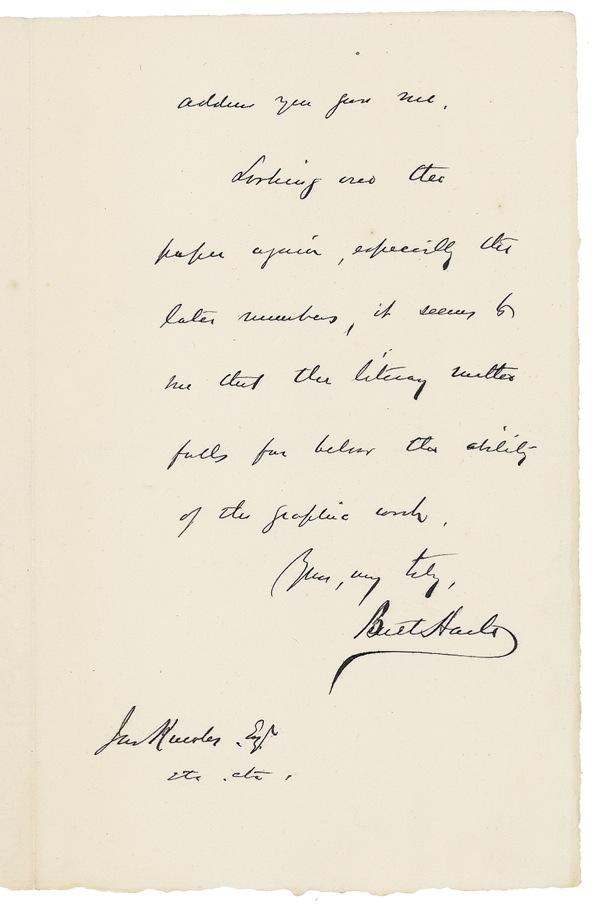 address you gave me.
Looking over the
paper again, especially the
later numbers, it seems to
me that the literary matter
falls far below the ability
of the graphic work.
Yours, very truly,
Bret Harte
Jas Knowles. Esq.
etc. etc.